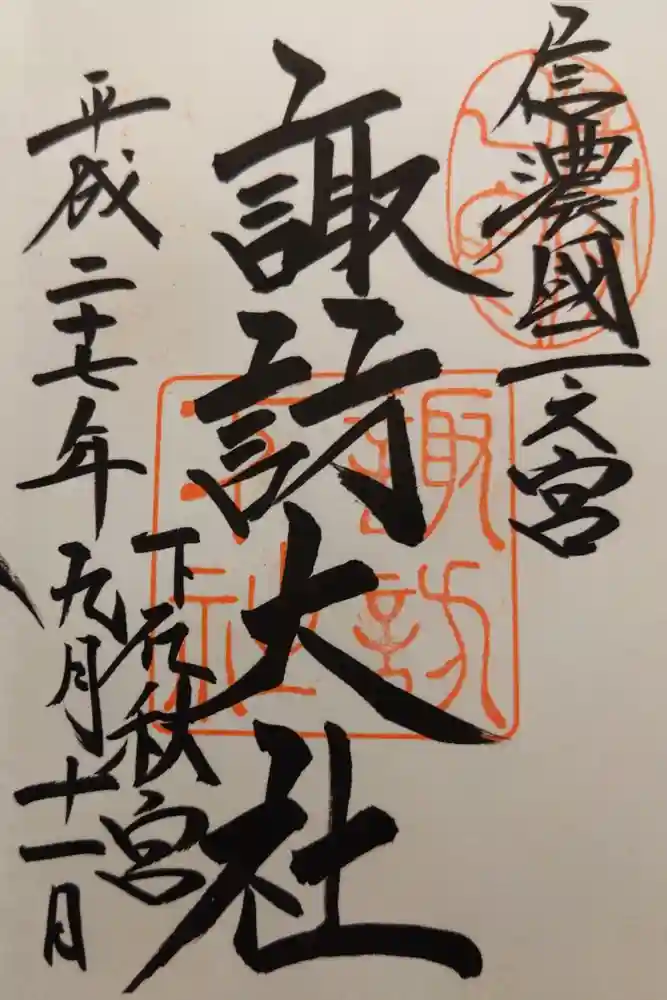 信濃國一之宮
諏訪大社
下社秋宮
平成二十七年九月十一日
諏訪
大社